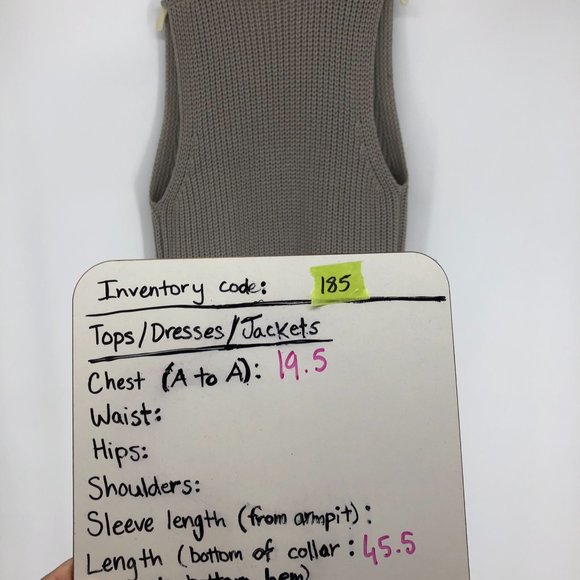 Inventory code: 185
Tops/Dresses/Jackets
Chest (A to A): 19.5
Waist:
Hips:
Shoulders:
Sleeve length (from armpit):
Length (bottom of collar: 45.5
bottom hem)